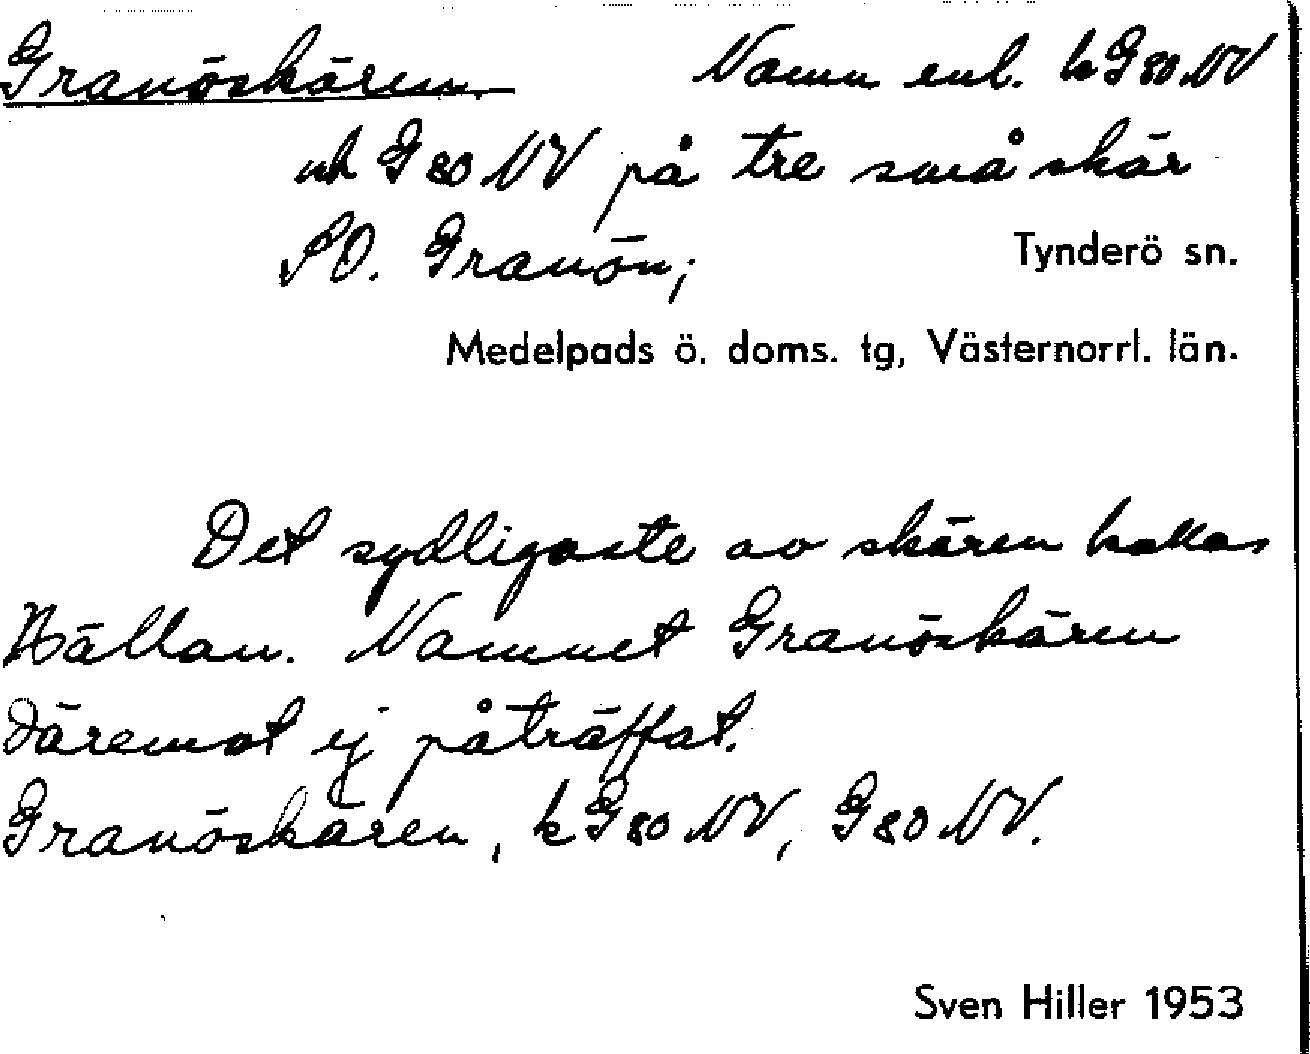 Granöskären Namn enl. k G 80 NV
och G 80 NV på tre små skär
SO. Granön;
Tynderö sn.
Medelpads ö. doms. tg, Västernorrl. län.
Det sydligaste av skären kallas
Hällan. Namnet Granöskären
däremot ej påträffat.
Granöskären, k G 80 NV, G 80 NV.
Sven Hiller 1953